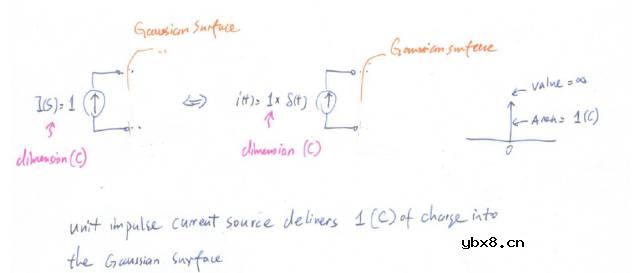 Gaussian Surface
Gaussian surface
I(s)=1
⇔
i(t)=1×δ(t)
dimension(C)
dimension(C)
value=∞
Area=1(C)
0
unit impulse current source delivers 1(C) of charge into
the Gaussian Surface
ybx8.cn